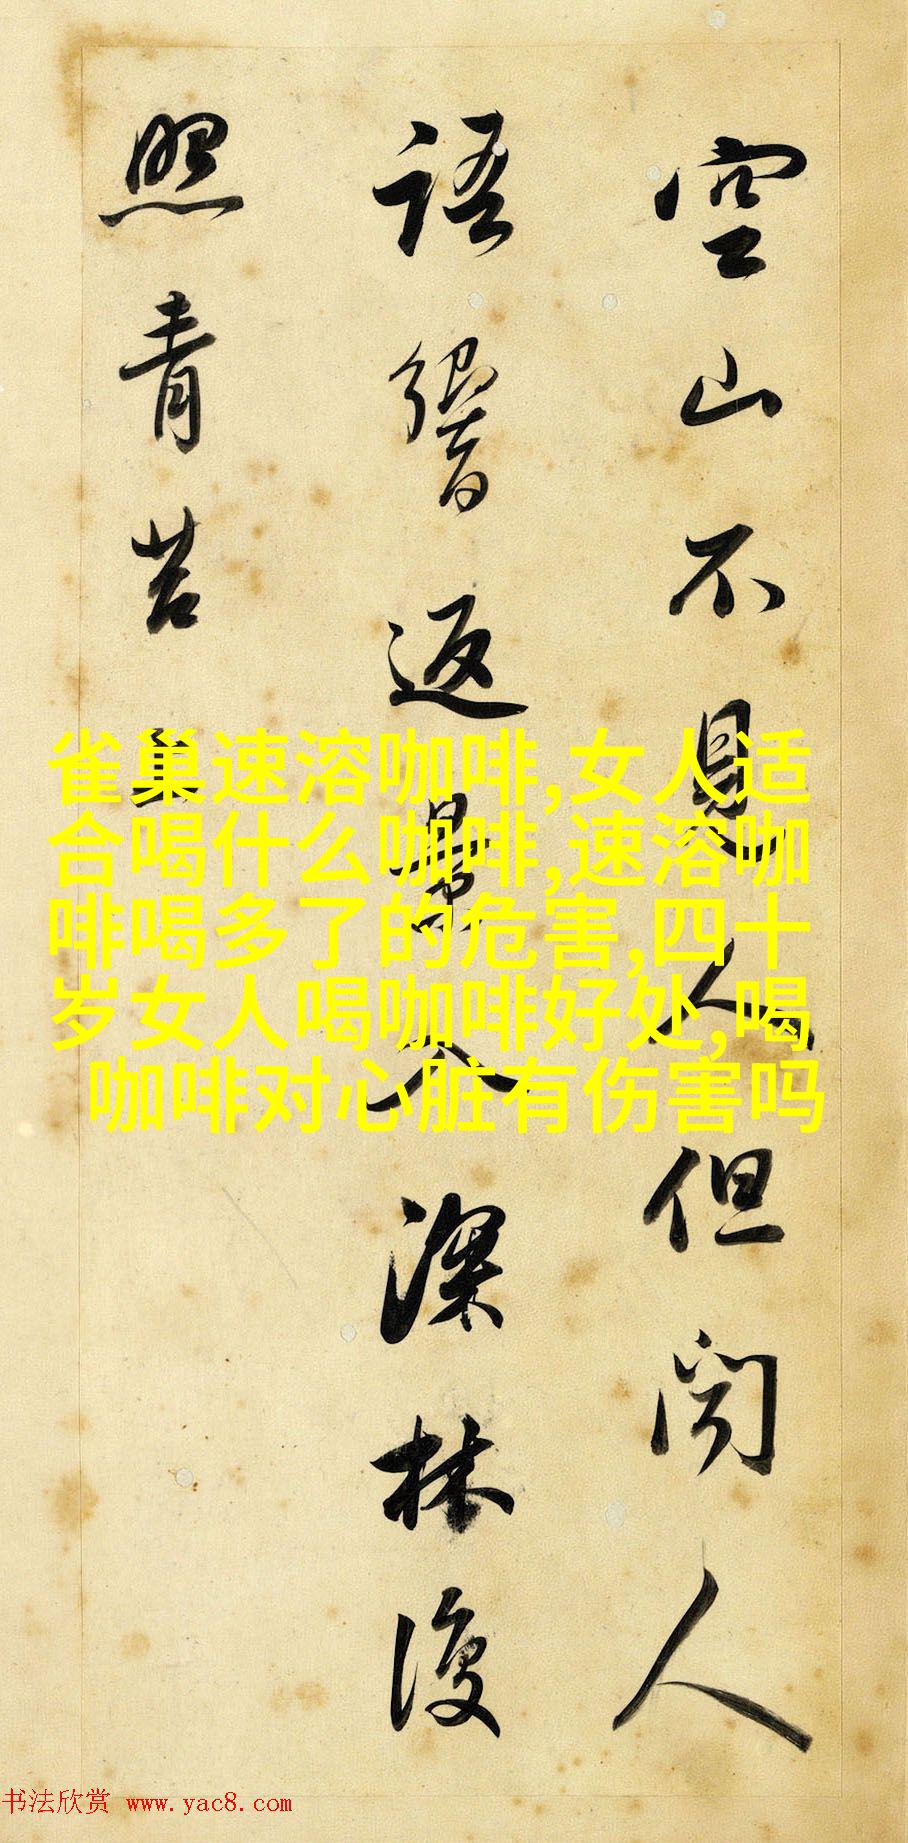 空山不見人但聞人
語響返景入深林復
照青苔
雀巢速溶咖啡,女人适
合喝什么咖啡,速溶咖
啡喝多了的危害,四十
岁女人喝咖啡好处,喝
咖啡对心脏有伤害吗
书法欣赏 www.yac8.com